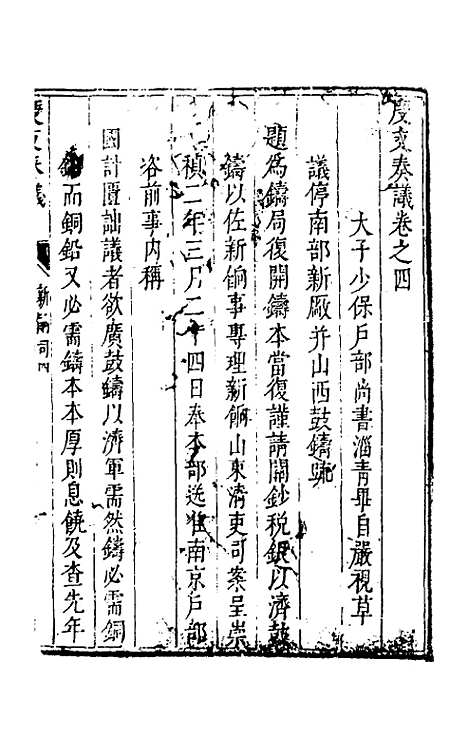 度支奏議卷之四
太子少保戶部尚書淄青畢自嚴視草
議停南部新厰并山西鼓鑄疏
題爲鑄局復開鑄本當復謹請關鈔稅銀以濟鼓
鑄以佐新餉事專理新餉山東清吏司案呈崇
禎二年三月二十四日奉本部送准南京戶部
咨前事内稱
國計匱詘議者欲廣鼓鑄以濟軍需然鑄必需銅
而銅鉛又必需鑄本本厚則息饒及查先年
度支奏議
新餉司四